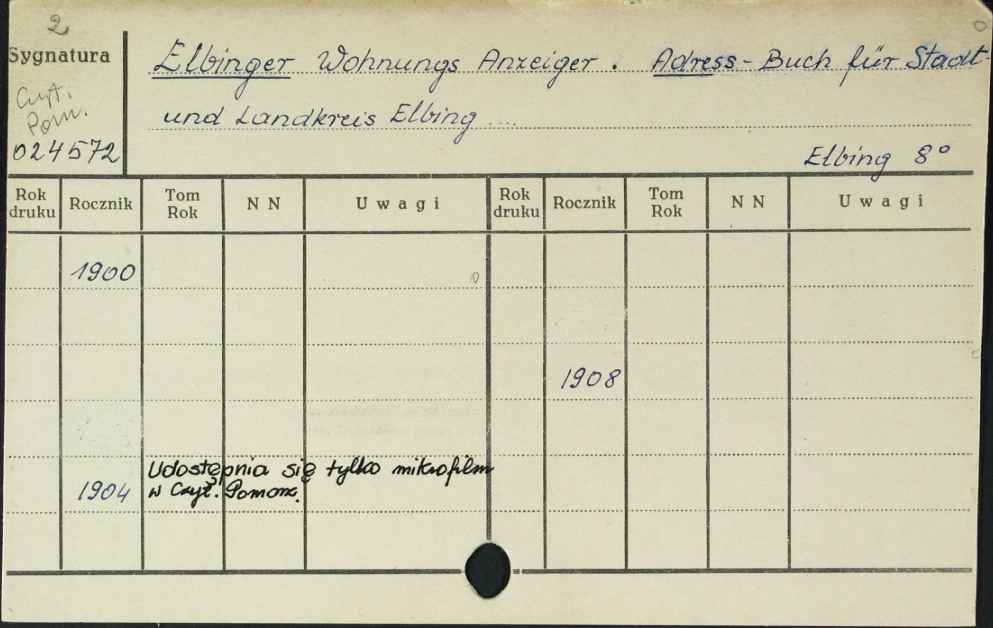 2
Sygnatura
Elbinger Wohnungs Anzeiger. Adress-Buch für Stadt-
Czyt.
Pom.
und Landkreis Elbing ...
024572
Elbing 8°
Rok druku Rocznik Tom Rok N N Uwagi Rok druku Rocznik Tom Rok N N Uwagi
1900
1908
Udostępnia się tylko mikrofilm
1904 w Czyt. Pomorz.